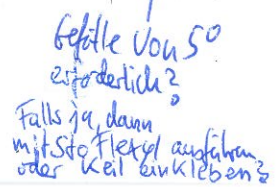 Gefälle von 5°
erforderlich?
Falls ja, dann
mit Sto Flexyl ausführen
oder Keil einkleben?